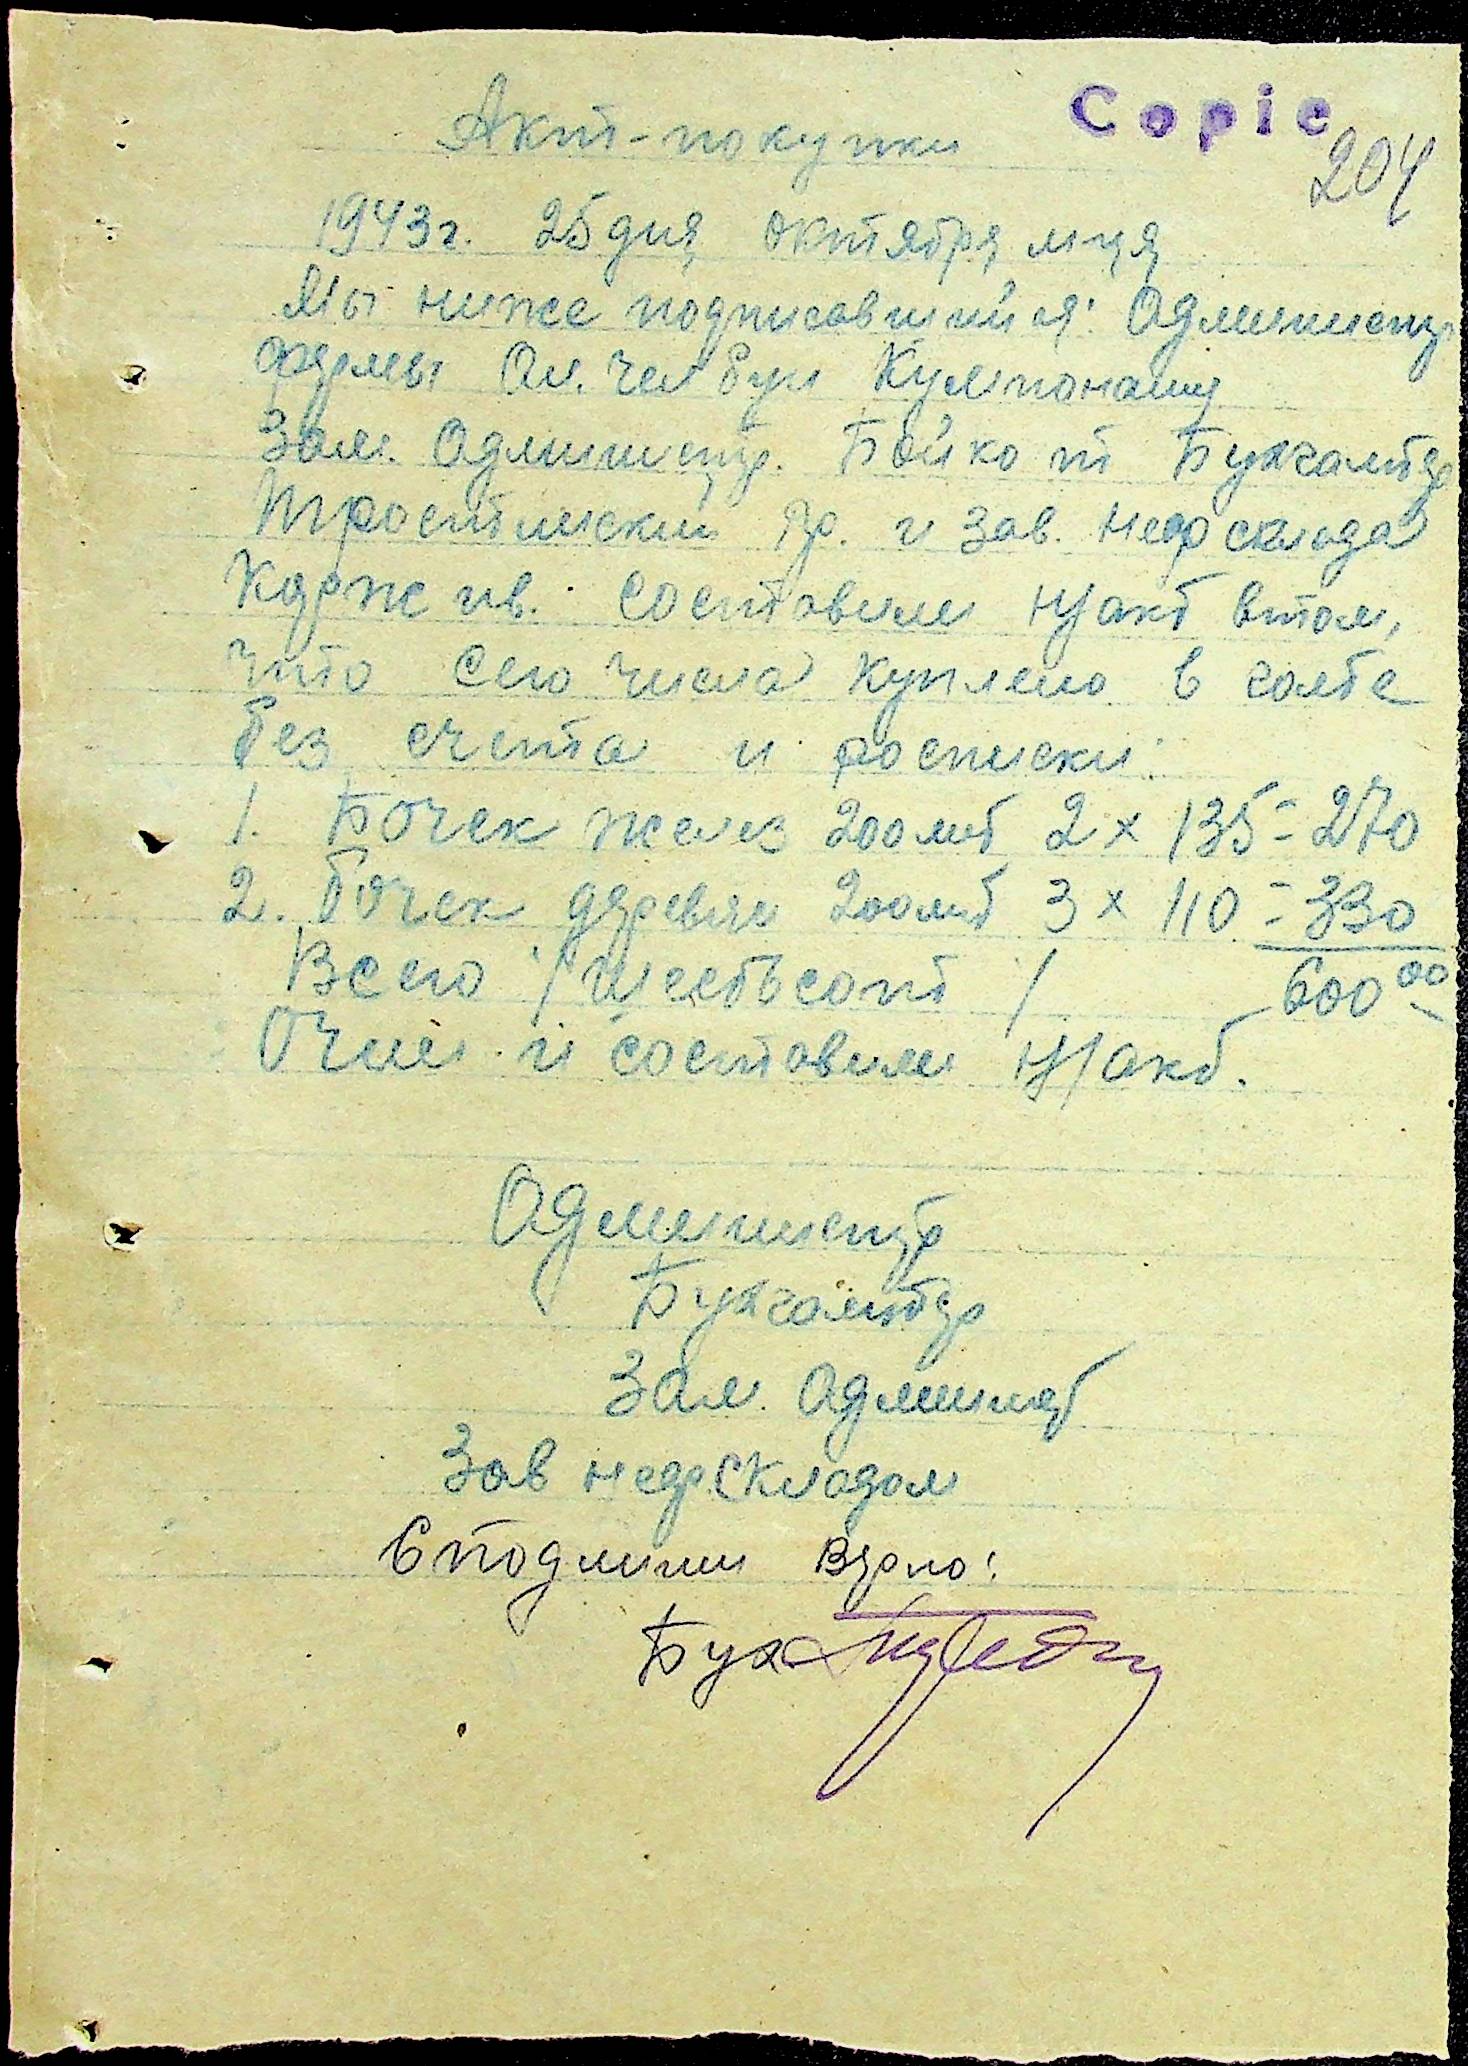 Copie
204
Акт-покупки
1943г. 25 дня октября м-ця
Мы ниже подписавшийся: Администр
фермы Ол. Челбун Кумпонашу
Зам. Администр. Бойко т Бухгалтер
Тростинский Гр. и Зав. нефсклада
Корж ив. составили н/акт втом,
что сего числа куплено в
без счета и росписки:
1. Бочек желез 200лит 2 x 135 = 270
2. Бочек деревян 200лит 3 x 110 = 330
Всего /шестьсот / 600 00
О чем и составили н/акт.
Администр
Бухгалтер
Зам. Админист
Зав нефскладом
С подлиним верно:
Бух